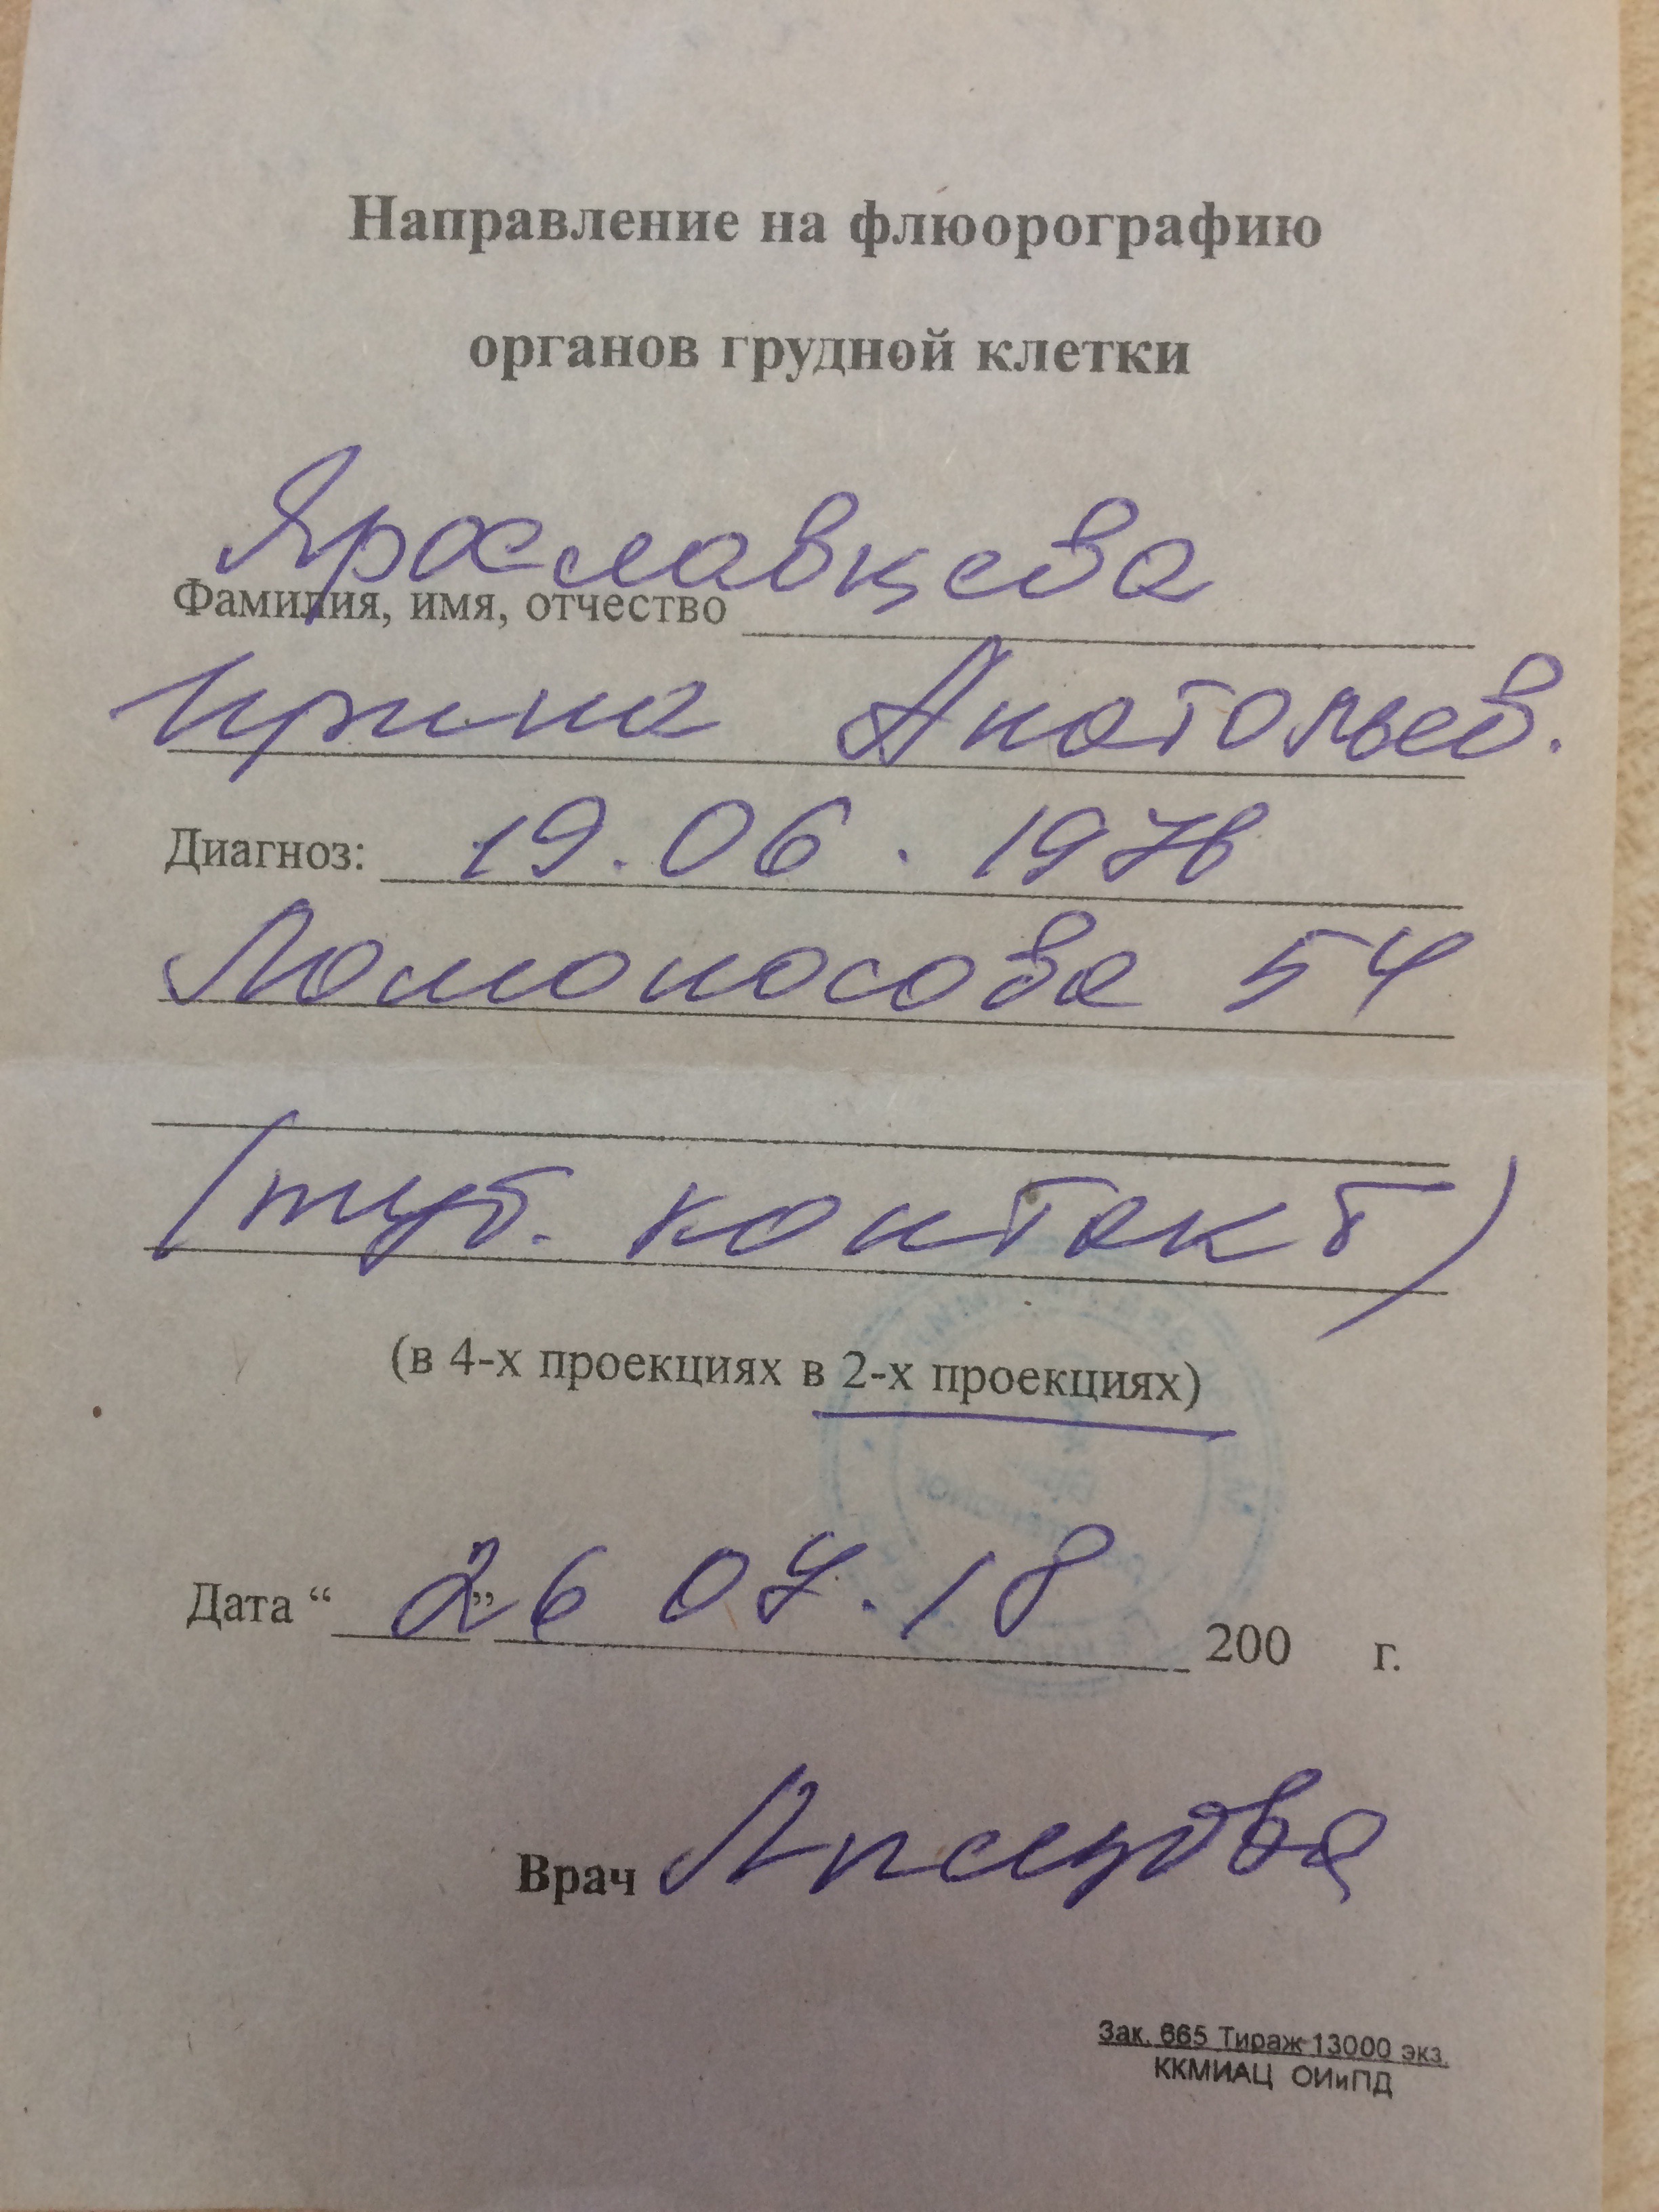 Направление на флюорографию
органов грудной клетки
Ярославцева
Фамилия, имя, отчество
Ирина Анатольев.
Диагноз: 19.06.1976
Ломоносова 54
(туб. контакт)
(в 4-х проекциях в 2-х проекциях)
Дата “ 26 ” 07.18 200 г.
Врач
Зак. 665 Тираж 13000 экз.
ККМИАЦ ОИиПД